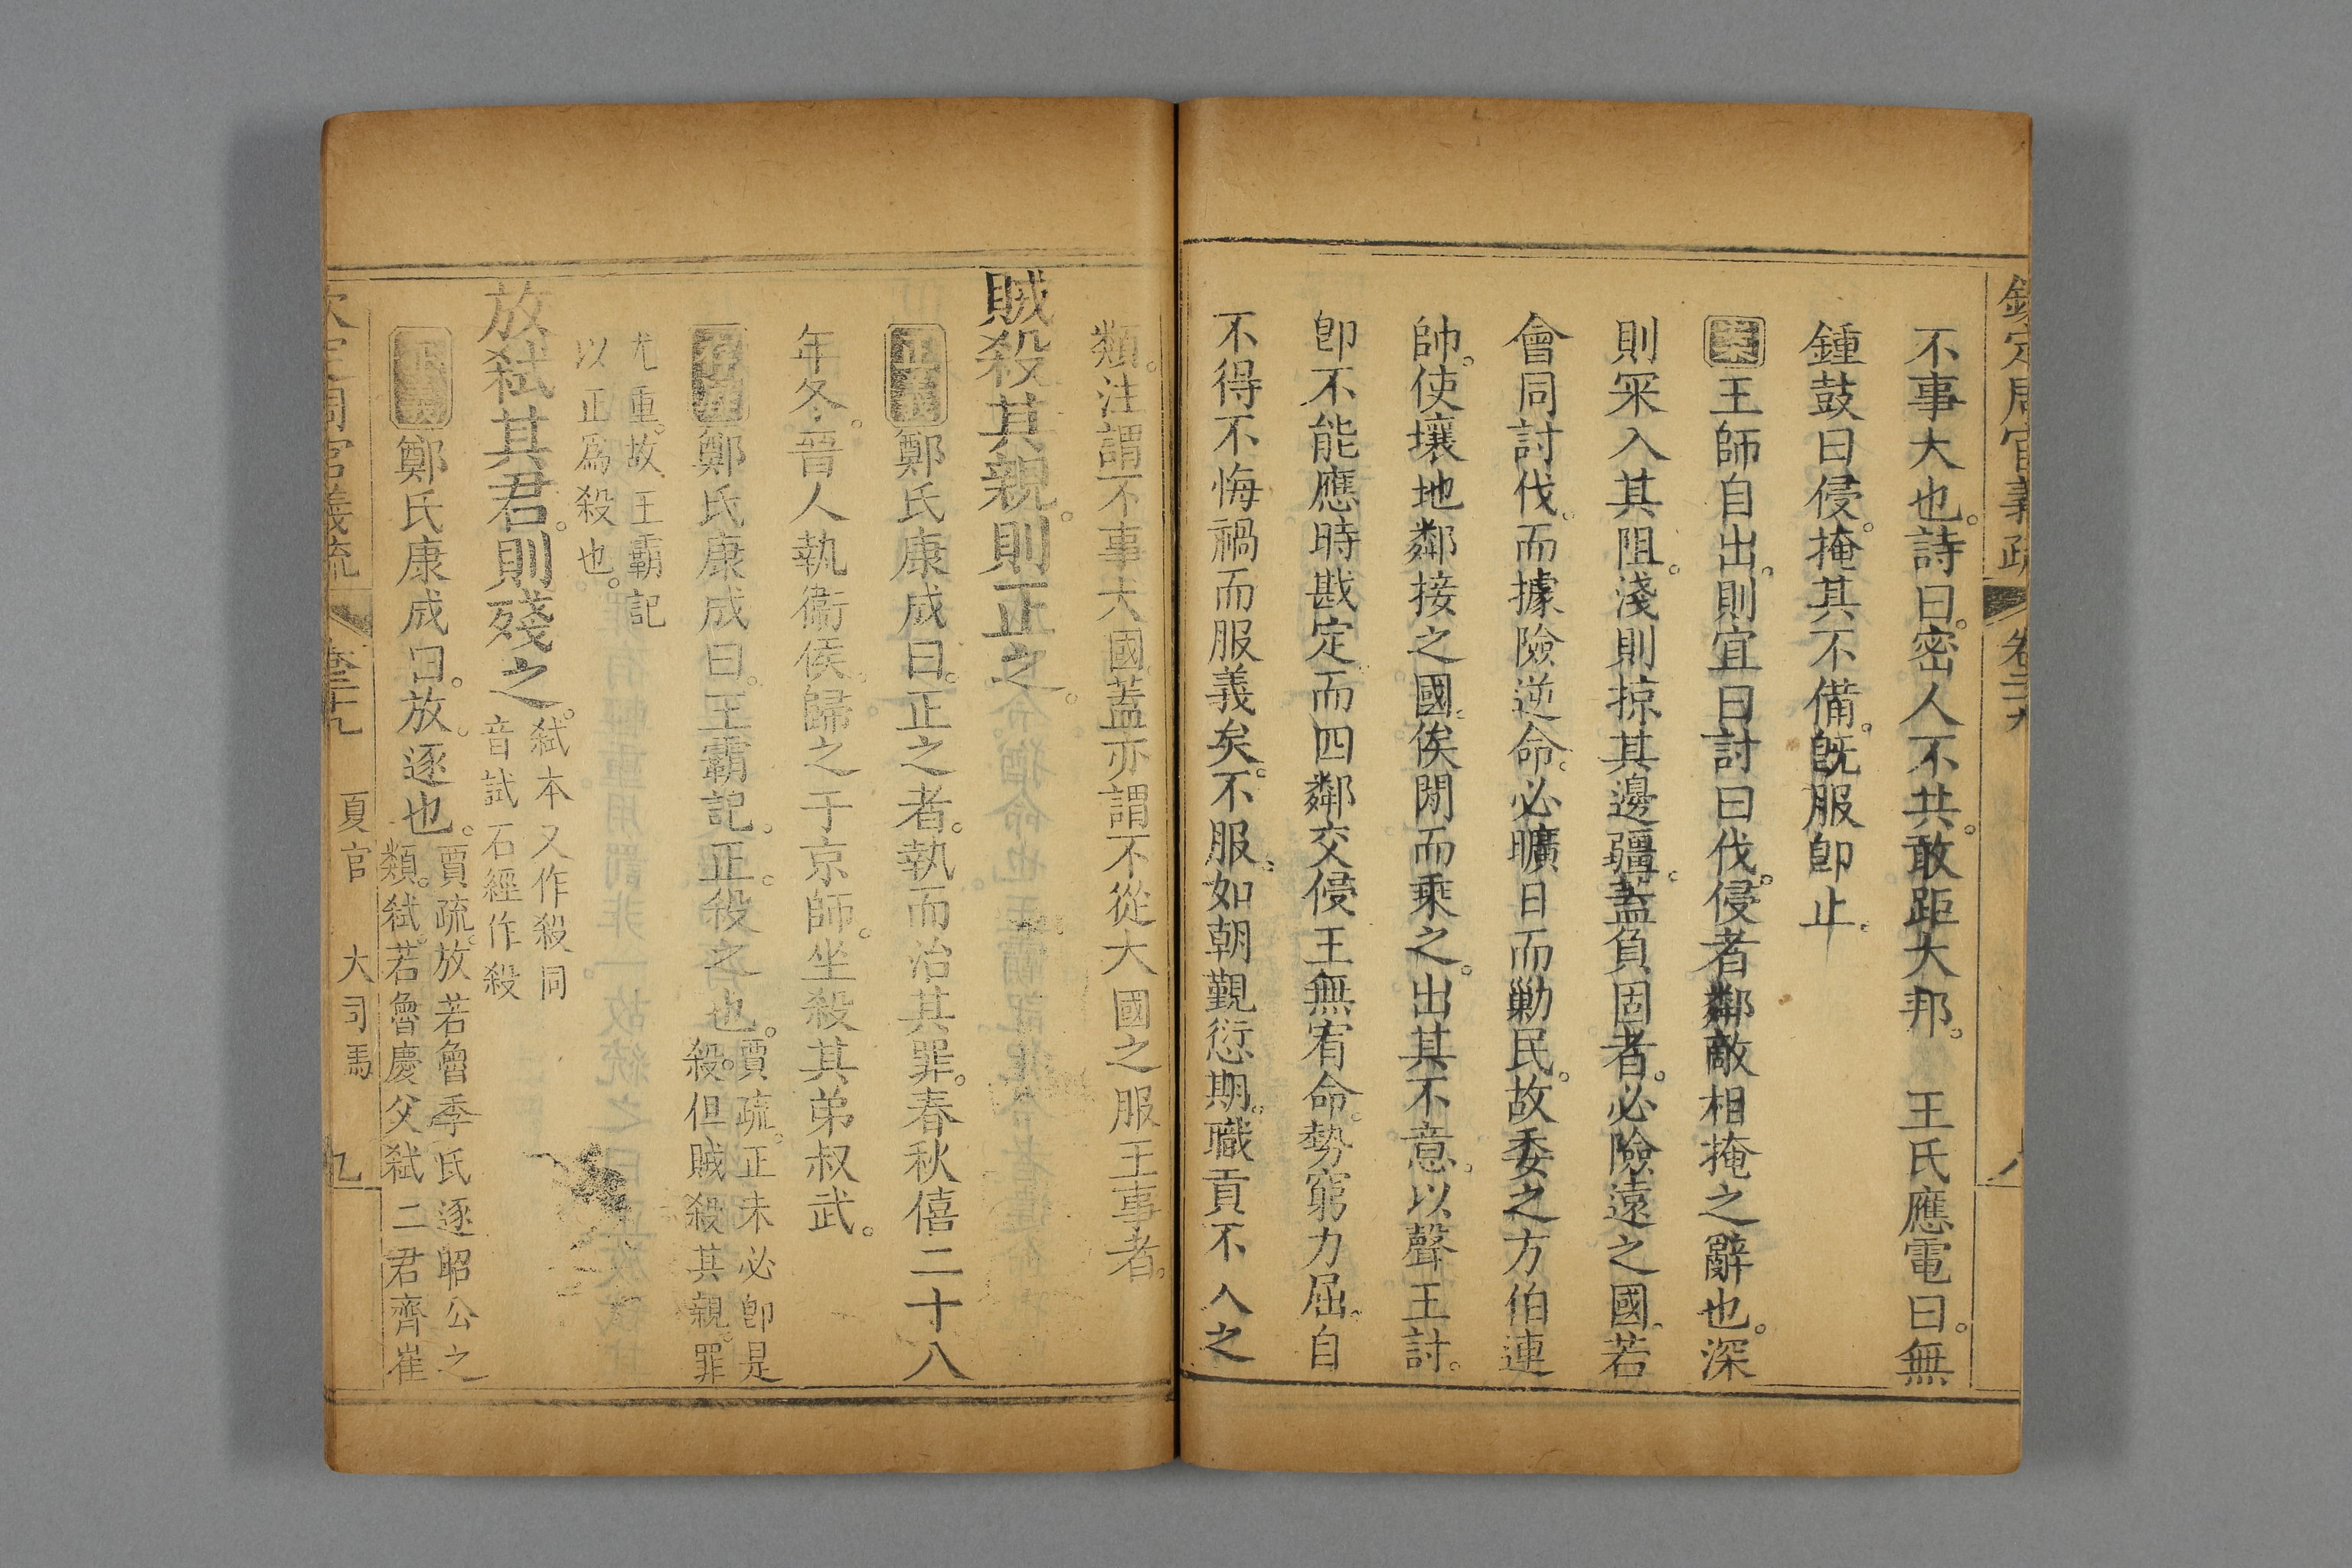 欽定周官義疏 卷二十九 八
不事大也。詩曰。密人不共。敢距大邦。 王氏應電曰。無
鍾鼓曰侵。掩其不備。旣服卽止。
案王師自出。則宜曰討曰伐。侵者鄰敵相掩之辭也。深
則冞入其阻。淺則掠其邊疆。蓋負固者。必險遠之國。若
會同討伐。而據險逆命。必曠日而勦民。故委之方伯連
帥。使壤地鄰接之國。俟閒而乘之。出其不意。以聲王討。
卽不能應時戡定。而四鄰交侵。王無宥命。勢窮力屈。自
不得不悔禍而服義矣。不服。如朝覲愆期。職貢不入之
類。注謂不事大國。蓋亦謂不從大國之服王事者。
賊殺其親。則正之。
正義鄭氏康成曰。正之者。執而治其罪。春秋僖二十八
年冬。晉人執衞侯。歸之于京師。坐殺其弟叔武。
鄭氏康成曰。王霸記。正。殺之也。賈疏。正未必卽是
殺。但賊殺其親。罪
尤重。故王霸記
以正爲殺也。
放弑其君。則殘之。弑本又作殺同
音試石經作殺
正義鄭氏康成曰。放。逐也。賈疏。放若魯季氏逐昭公之
類。弑。若魯慶父弑二君齊崔
欽定周官義疏 卷二十九 夏官 大司馬 九